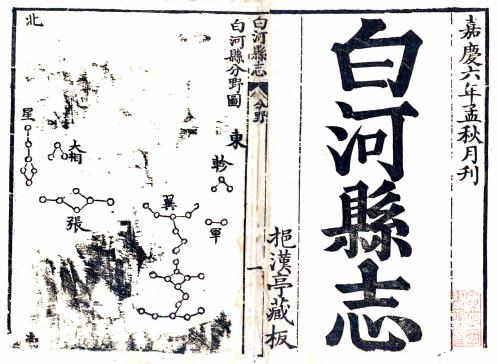 嘉慶六年孟秋月刊
白河縣志
挹漢亭藏板
白河縣志
分野
一
白河縣分野圖
東
軫
軍
翼
張
大相
星
北